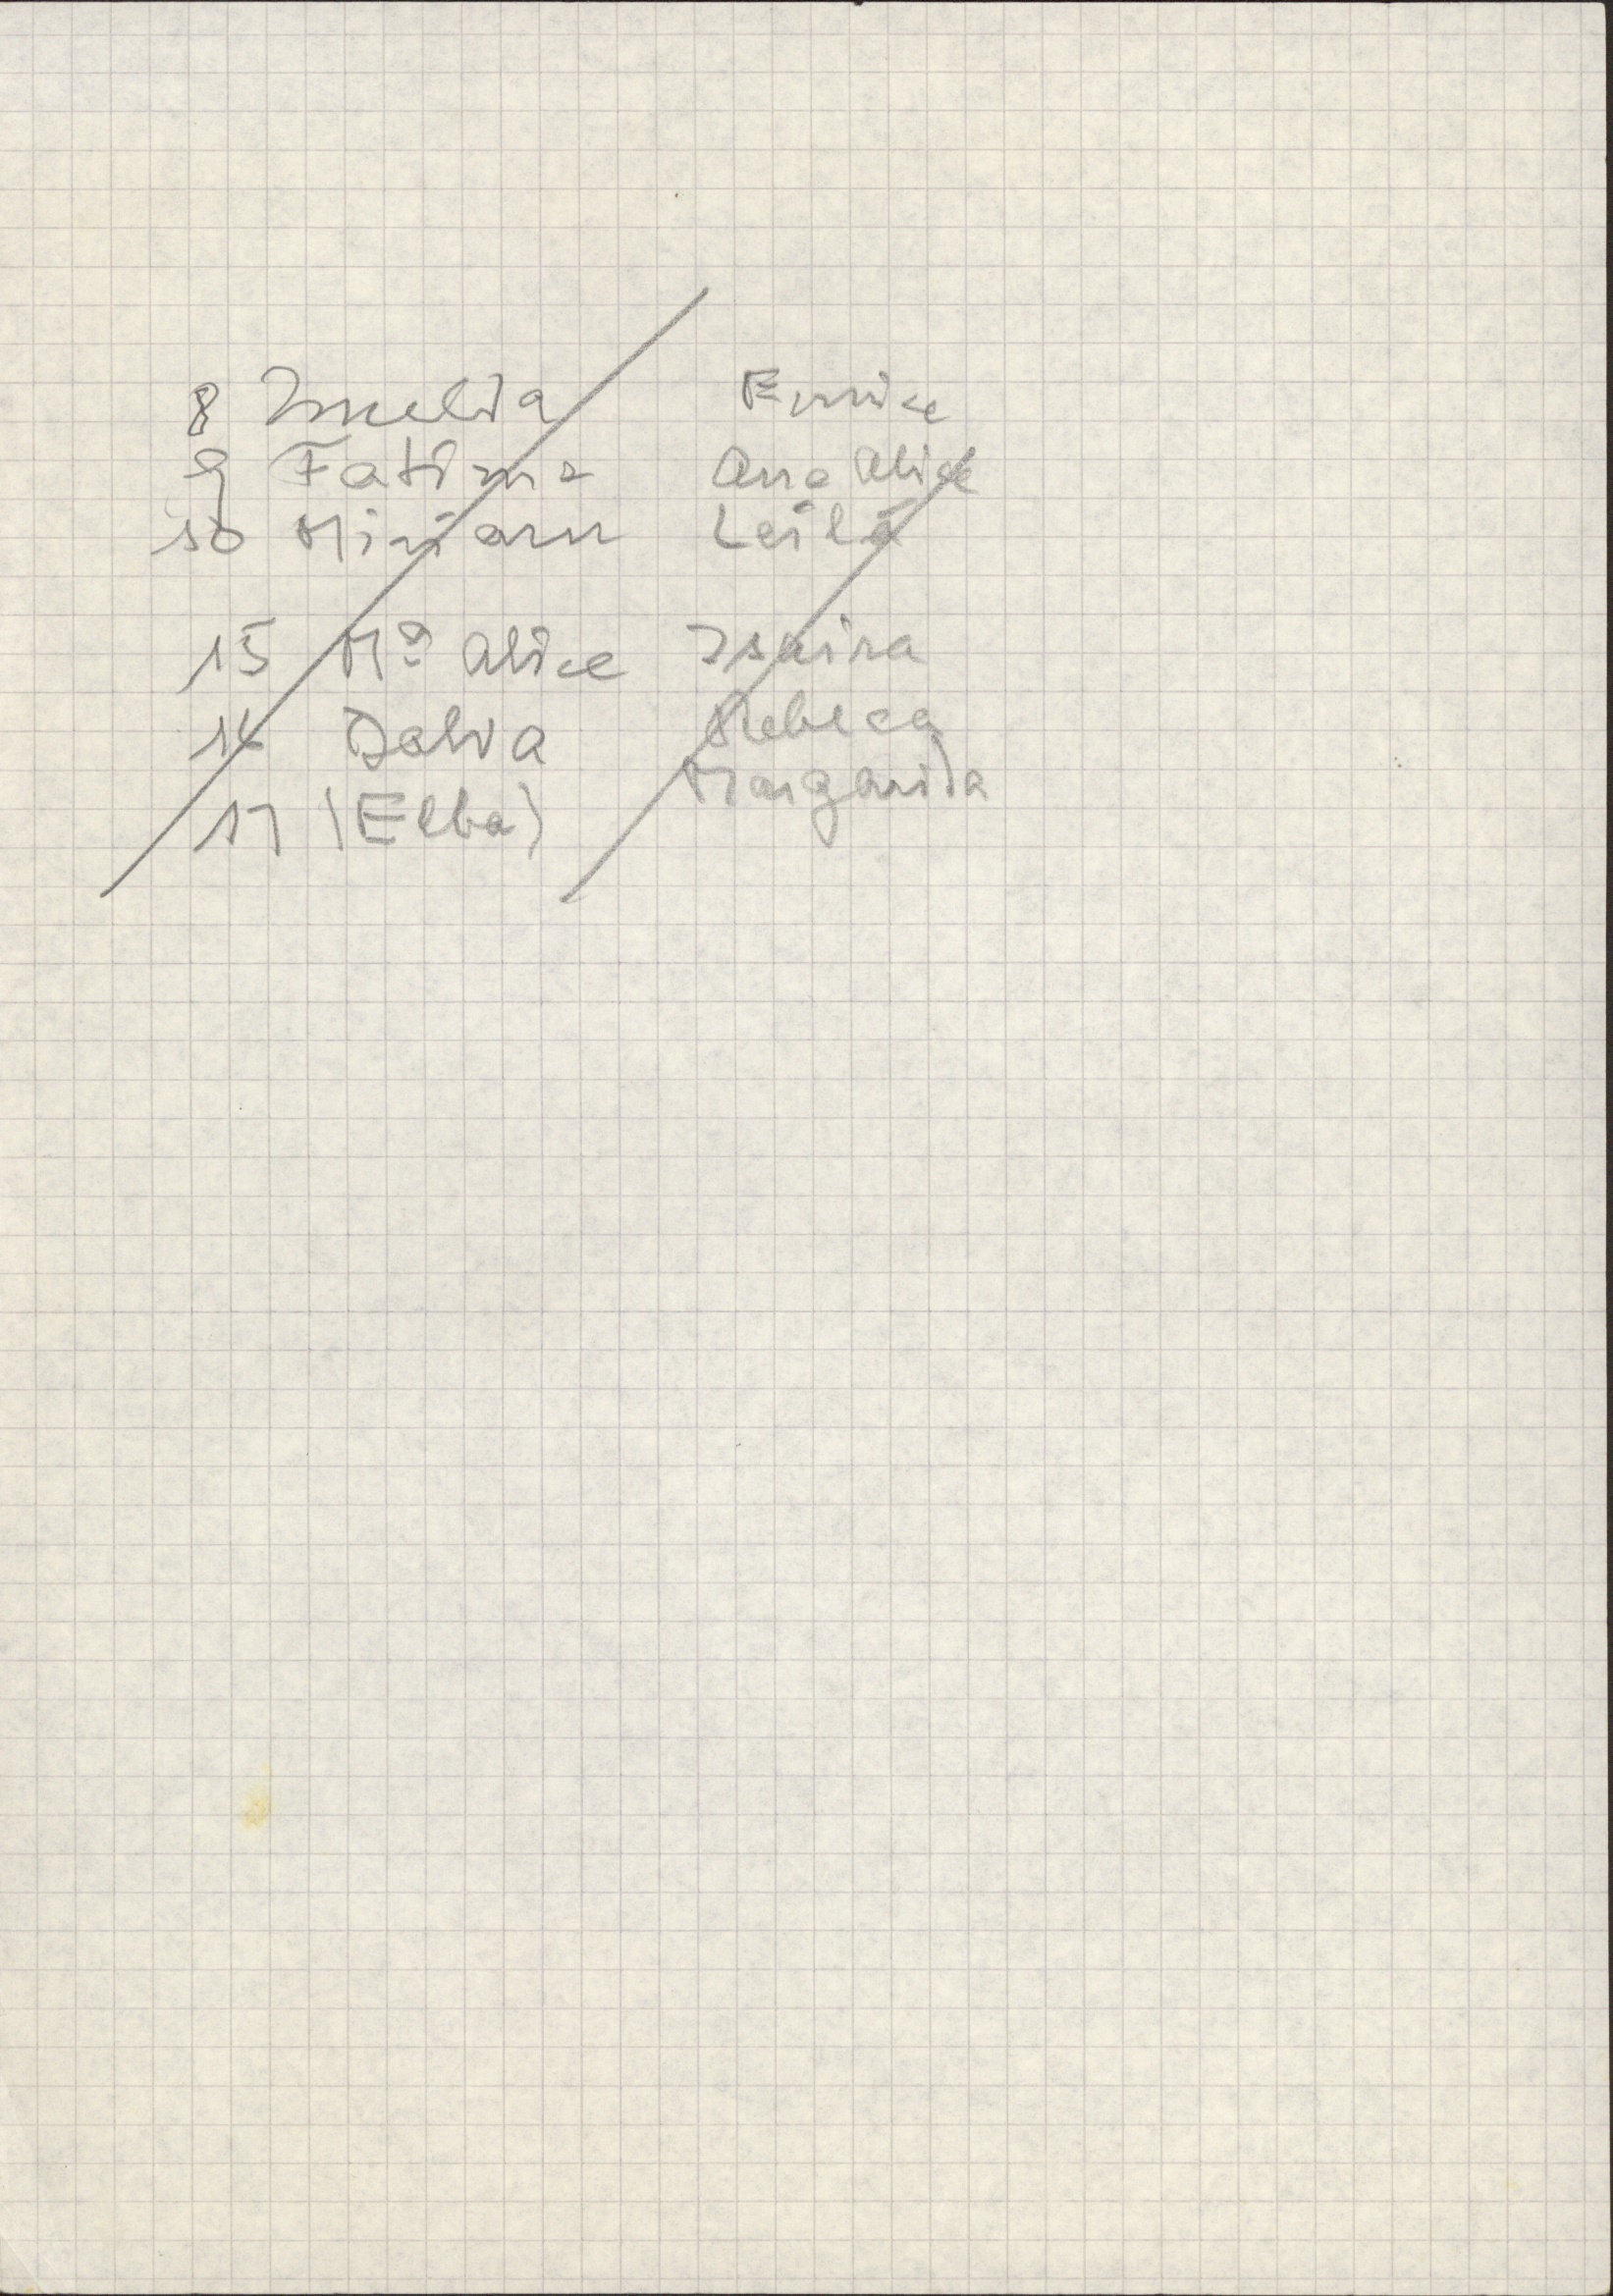 8 Imelda Eunice
9 Fatima Ana Alice
10 Miriam Leila
15 Mª Alice Isaira
16 Dalva Rebeca
17 (Elba) Margarida